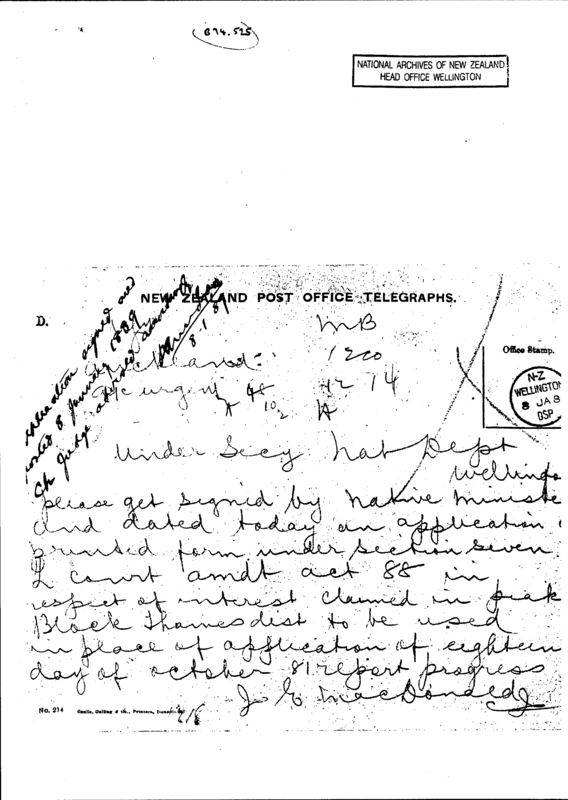 874.525
NATIONAL ARCHIVES OF NEW ZEALAND
HEAD OFFICE WELLINGTON
NEW ZEALAND POST OFFICE TELEGRAPHS.
D.
application signed and
posted 8 January 1889
Ch Judge advised
8.1.89
MB
Auckland
1220
urgent 48
42 74
10 2
Office Stamp.
N-Z
WELLINGTON
8 JA 8
OSP
Under Secy Nat Dept
Wellingto
please get signed by native ministe
and dated today an application
printed form under section seven
L court amdt act 88 in
respect of interest claimed in piak
Block Thames dist to be used
in place of application of eighteen
day of october 81 report progress
J E MacDonald
No. 214
Printers, Dunedin